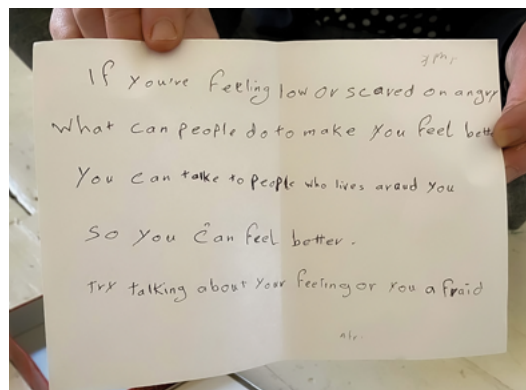 If you're feeling low or scared on angry
What can people do to make you feel bett
You can talke to people who lives aroud you
So you can feel better.
Try talking about your feeling or you afraid